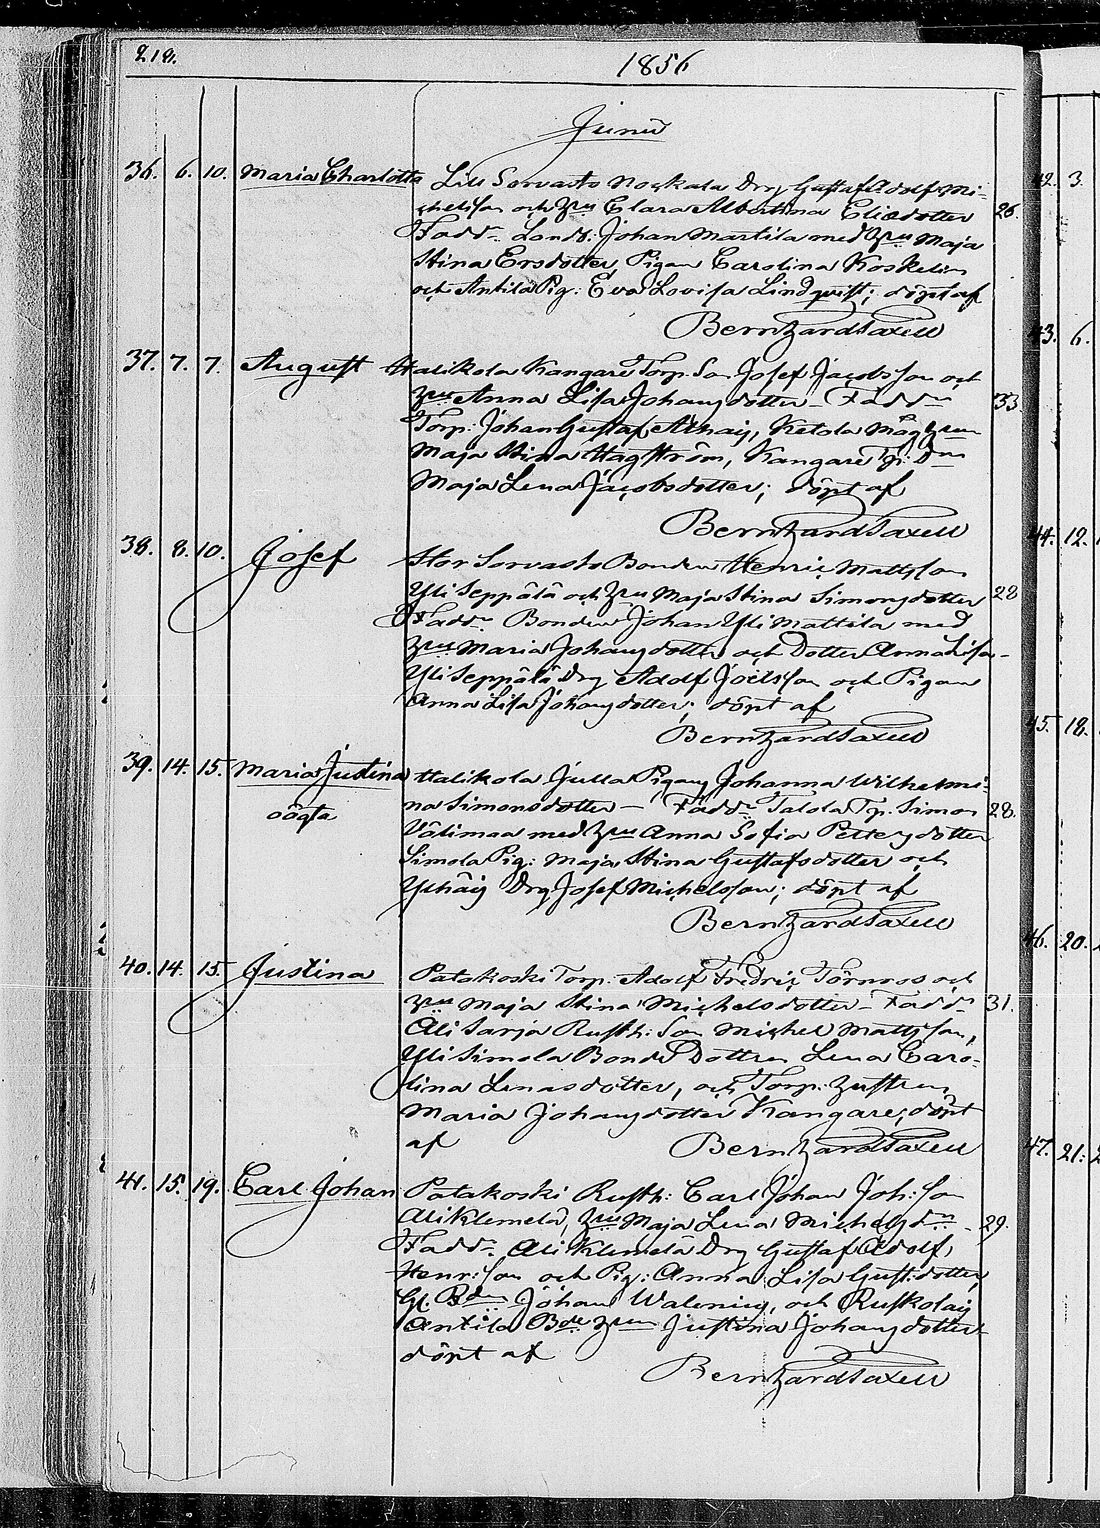 218.
1856
Junii
36. 6. 10. Maria Charlotta Lill Sorvasto Noukala Drg Gustaf Adolf Mi-
chelsson och Hru Clara Albertina Eliedotter 26.
Fadd: Landb: Johan Martila med Hru Maja
Stina Ersdotter, Pigan Carolina Koskelin
och Antila Pig: Eva Lovisa Lindqvist; döpt af
Bernhard Saxell
37. 7. 7. August Halikola Kangare Torp. Son Josef Jacobsson och
Hru Anna Lisa Johansdotter – Fadd: 33
Torp: Johan Gustaf Alhais, Ketola Måg Hru
Maja Stina Hagström, Kangare Tp: Dr
Maja Lena Jacobsdotter; döpt af
Bernhard Saxell
38. 8. 10. Josef Stor Sorvasto Bonden Henric Mattsson
Yli Seppälä och Hru Maja Stina Simonsdotter 28
Fadd: Bonden Johan Yli Mattila med
Hru Maria Johansdotter och Dotter Anna Lisa –
Yli Seppälä Drg Adolf Joelsson och Pigan
Anna Lisa Johansdotter; döpt af
Bernhard Saxell
39. 14. 15. Maria Justina Halikola Julla Pigans Johanna Wilhelmi-
oägta na Simonsdotter – Fadd: Talola Tp. Simon 28.
Välimaa med Hru Anna Sofia Pettersdotter
Simola Pig: Maja Stina Gustafsdotter och
Drg Josef Michelsson; döpt af
Bernhard Saxell
40. 14. 15. Justina Patakoski Torp. Adolf Fredric Törnroos och
Hru Maja Stina Michelsdotter – Fadd: 31.
Ali Sarja Rusth: Son Michel Mattsson,
Yli Simola Bonde Dottren Lena Caro-
lina Lenasdotter, och Torp: Hustrun
Maria Johansdotter Kangare; döpt
af Bernhard Saxell
41. 15. 19. Carl Johan Patakoski Rusth: Carl Johan Joh:son
Ali Klemelä, Hru Maja Lena Michelsdr – 29.
Fadd: Ali Klemelä Drg Gustaf Adolf
Henr:son och Pig: Anna Lisa Gust:dotter,
Gl. Bdn Johan Walenius, och Ruskolais
Antila Bde Hru Justina Johansdotter
döpt af
Bernhard Saxell
42. 3.
43. 6.
44. 12.
45. 18.
46. 20.
47. 21.